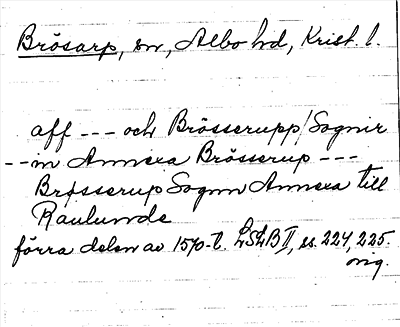 Brösarp, sn, Albo hd, Krist. l.
aff --- och Brösserupp/Sognir
--m Annexa Brösserup ---
Brøsserup Sognn Annexa till
Raulunde
förra delen av 1570-t. LSLB II, ss. 224, 225.
orig.